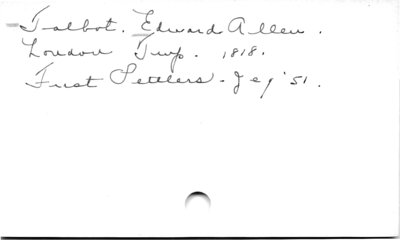 Talbot. Edward Allen.
London Twp. 1818.
First Settlers - J e g '51.